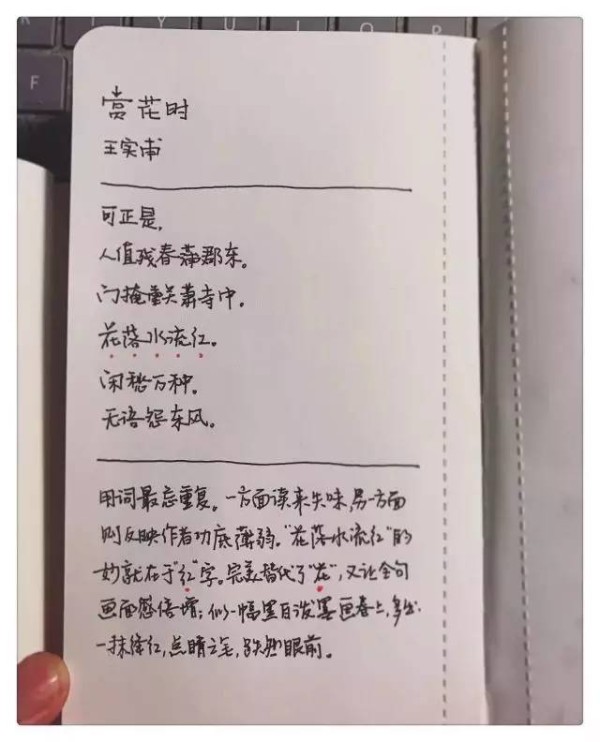 R T Y U I O P
F
赏花时
王实甫
可正是,
人值残春蒲郡东。
门掩重关萧寺中。
花落水流红。
闲愁万种。
无语怨东风。
用词最忌重复。一方面读来失味,另一方面
则反映作者功底薄弱。“花落水流红”的
妙就在于“红”字。完美替代了“花”,又让全句
画面感倍增;似一幅黑白泼墨画卷上,多出
一抹绛红,点睛之笔,跃然眼前。